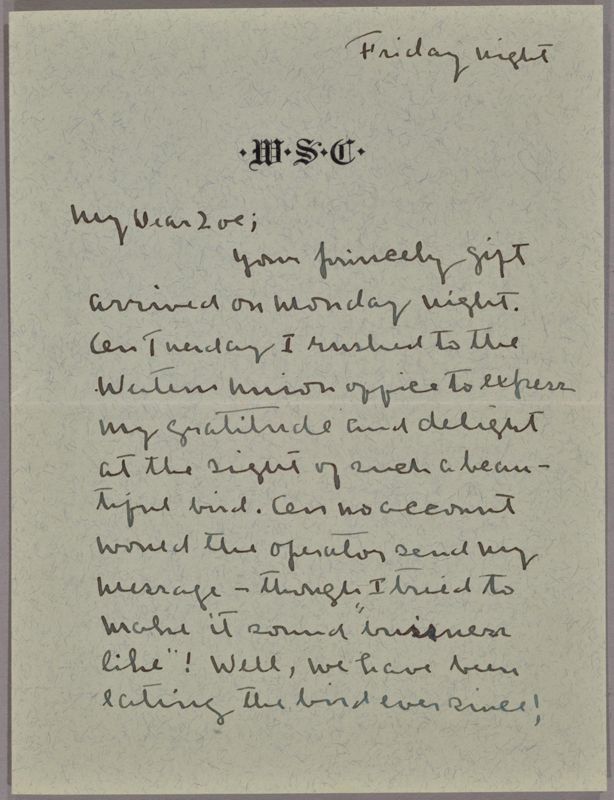 Friday night
·W·S·C·
My Dear Zoe;
Your princely gift
arrived on Monday night.
On Tuesday I rushed to the
Western Union office to express
my gratitude and delight
at the sight of such a beau-
tiful bird. On no account
would the operator send my
message – though I tried to
make it sound "business
like"! Well, we have been
eating the bird ever since!